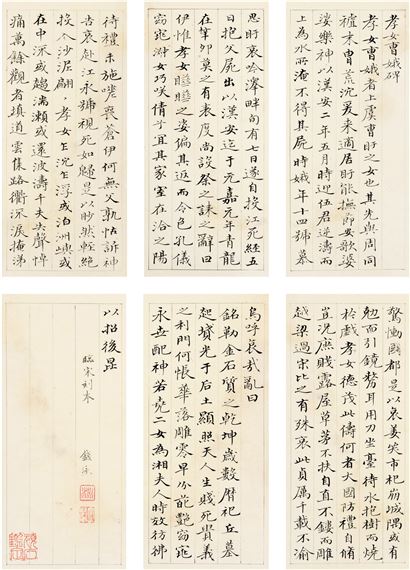 孝女曹娥碑
孝女曹娥者上虞曹盱之女也其先與周同
祖末胄荒沉爰来適居盱能撫節安歌婆
娑樂神以漢安二年五月時迎伍君逆濤而
上為水所淹不得其屍時娥年十四號慕
思盱哀吟澤畔旬有七日遂自投江死經五
日抱父屍出以漢安迄于元嘉元年青龍
在辛卯莫之有表度尚設祭之誄之辭曰
伊惟孝女曄曄之姿偏其返而令色孔儀
窈窕淑女巧咲倩兮宜其家室在洽之陽
待禮未施嗟喪蒼伊何無父孰怙訴神
告哀赴江永號視死如歸是以眇然輕絶
投入沙泥翩〻孝女乍沉乍浮或泊洲嶼或
在中流或趨湍瀬或還波濤千夫失聲悼
痛萬餘觀者填道雲集路衢流淚掩涕
驚慟國都是以哀姜哭市杞崩城隅或有
尅面引鏡剺耳用刀坐臺待水抱樹而燒
於戲孝女德茂此儔何者大國防禮自脩
豈况庶賤露屋草茅不扶自直不鏤而雕
越梁過宋比之有殊哀此貞厲千載不渝
嗚呼哀哉亂曰
銘勒金石質之乾坤歲數曆祀丘墓
起墳光于后土顯照天人生賤死貴義
之利門何悵華落雕零早分葩艷窈窕
永世配神若堯二女為湘夫人時效彷彿
以招後昆
臨宋刻本
錢泳